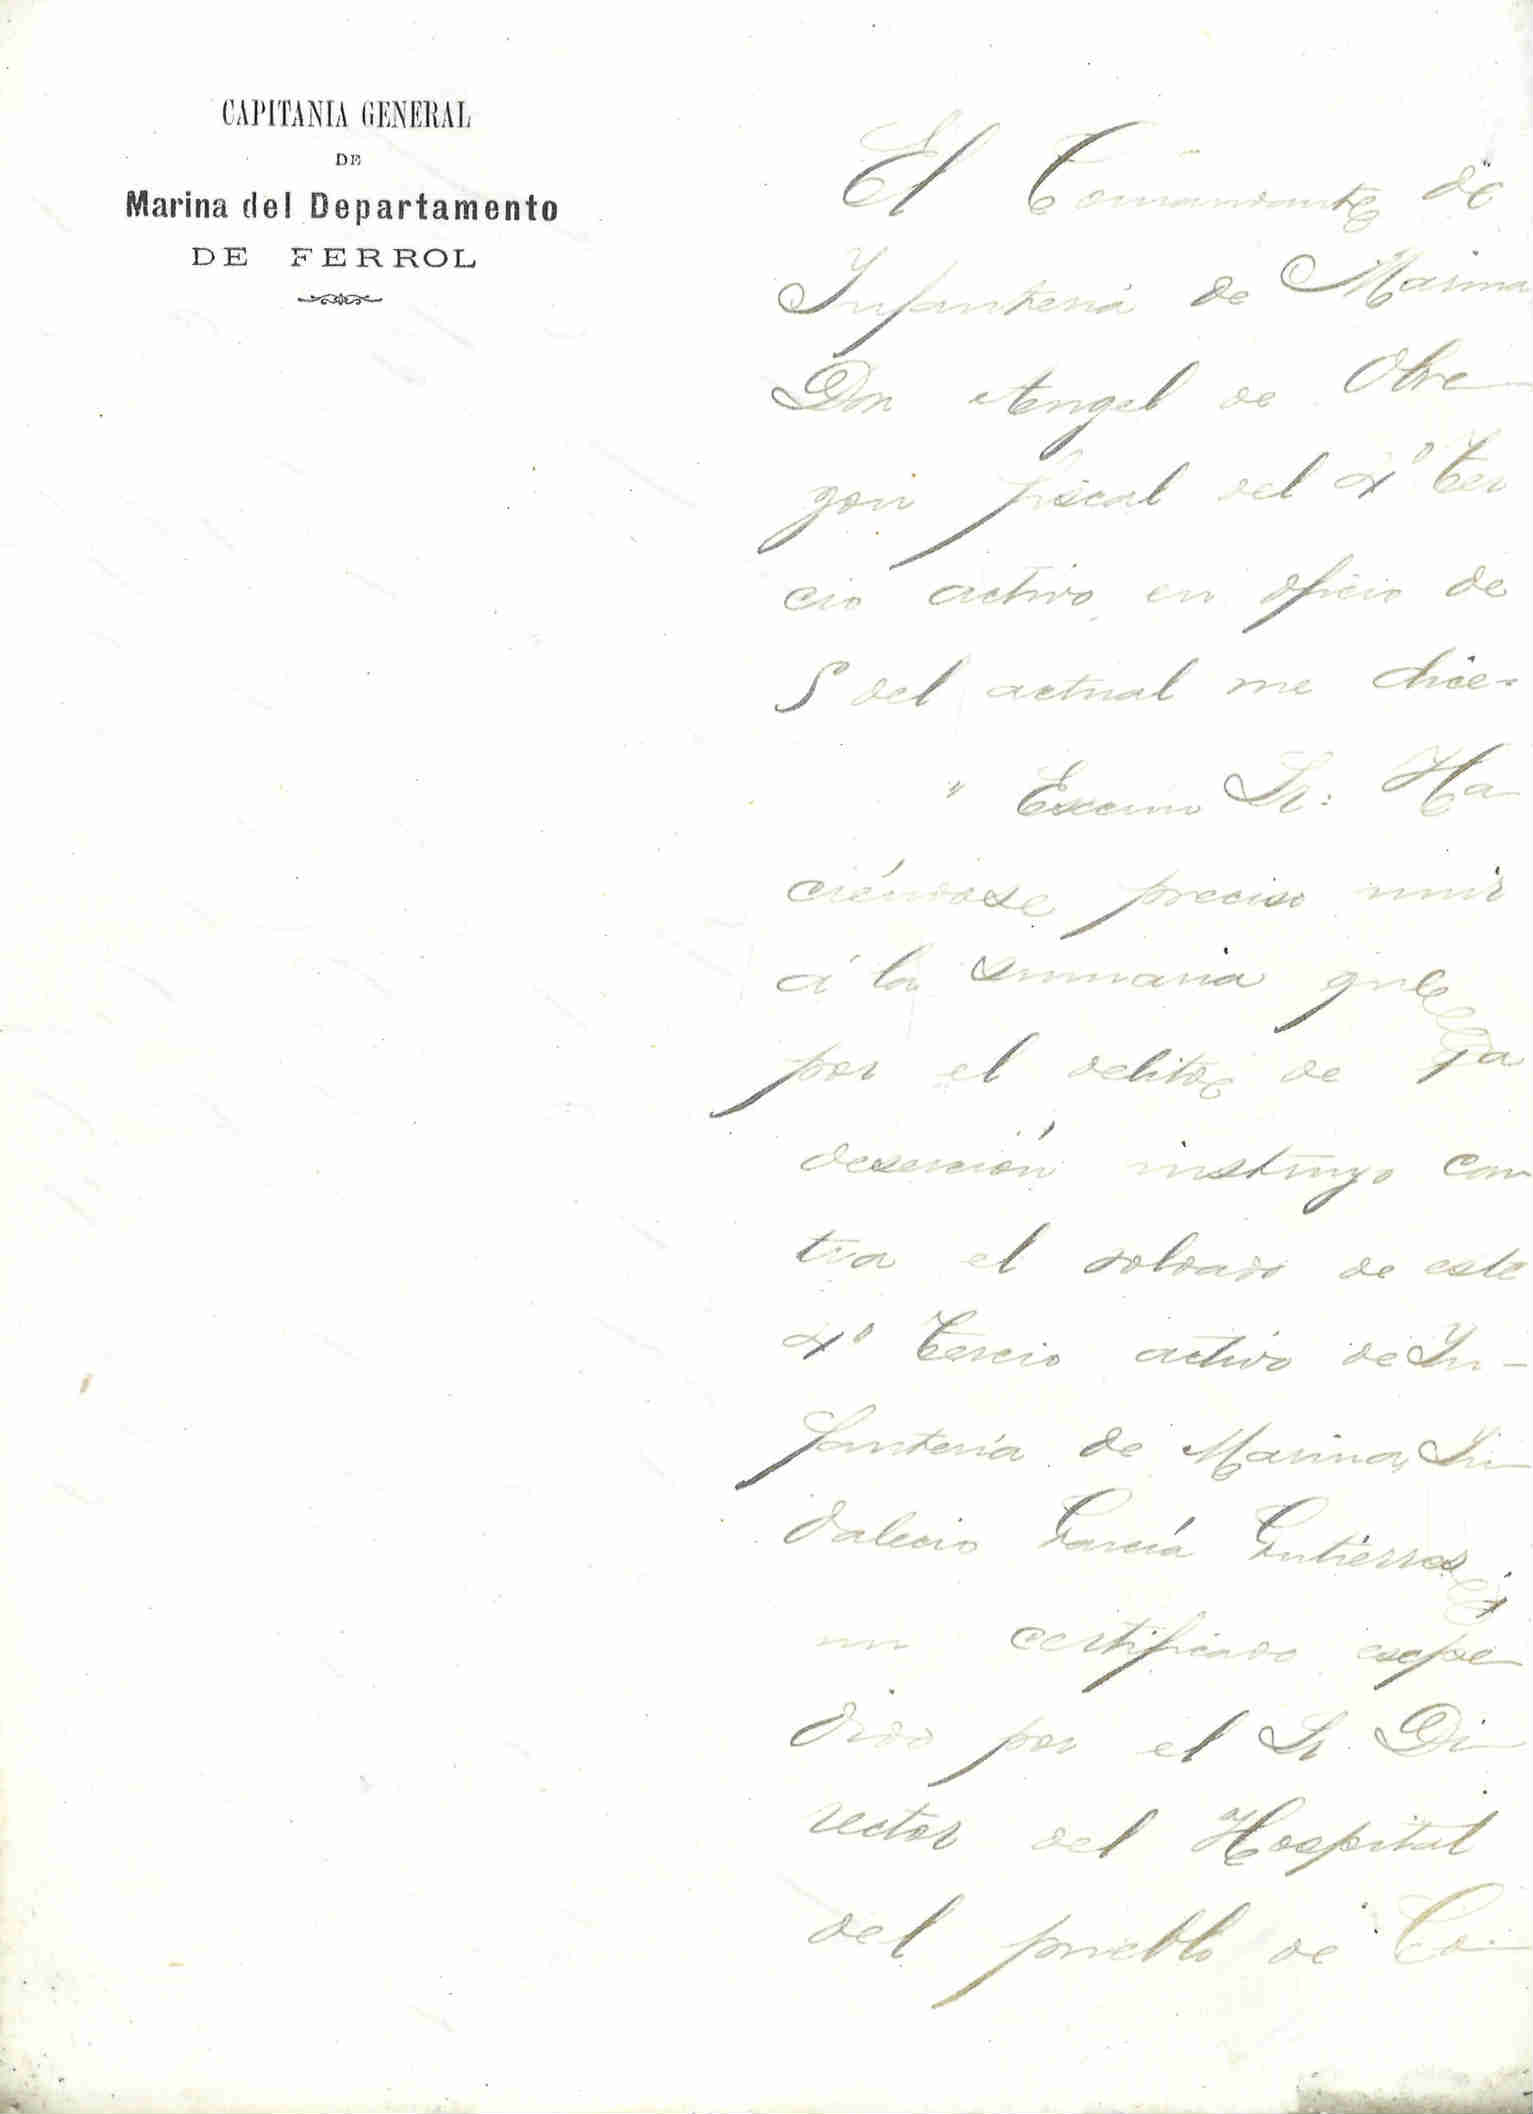 CAPITANIA GENERAL
DE
Marina del Departamento
DE FERROL
El Comandante de
Infantería de Marina
Don Angel de Obre
gon fiscal del 4º Ter
cio activo, en oficio de
5 del actual me dice=
" Excmo Sr: Ha
ciéndose preciso unir
á la sumaria que
por el delito de 1ª
deserción instruyo con
tra el soldado de este
4º Tercio activo de In-
fantería de Marina, In
dalecio García Gutierres
un certificado expe
dido por el Sr. Di
rector del Hospital
del pueblo de Co